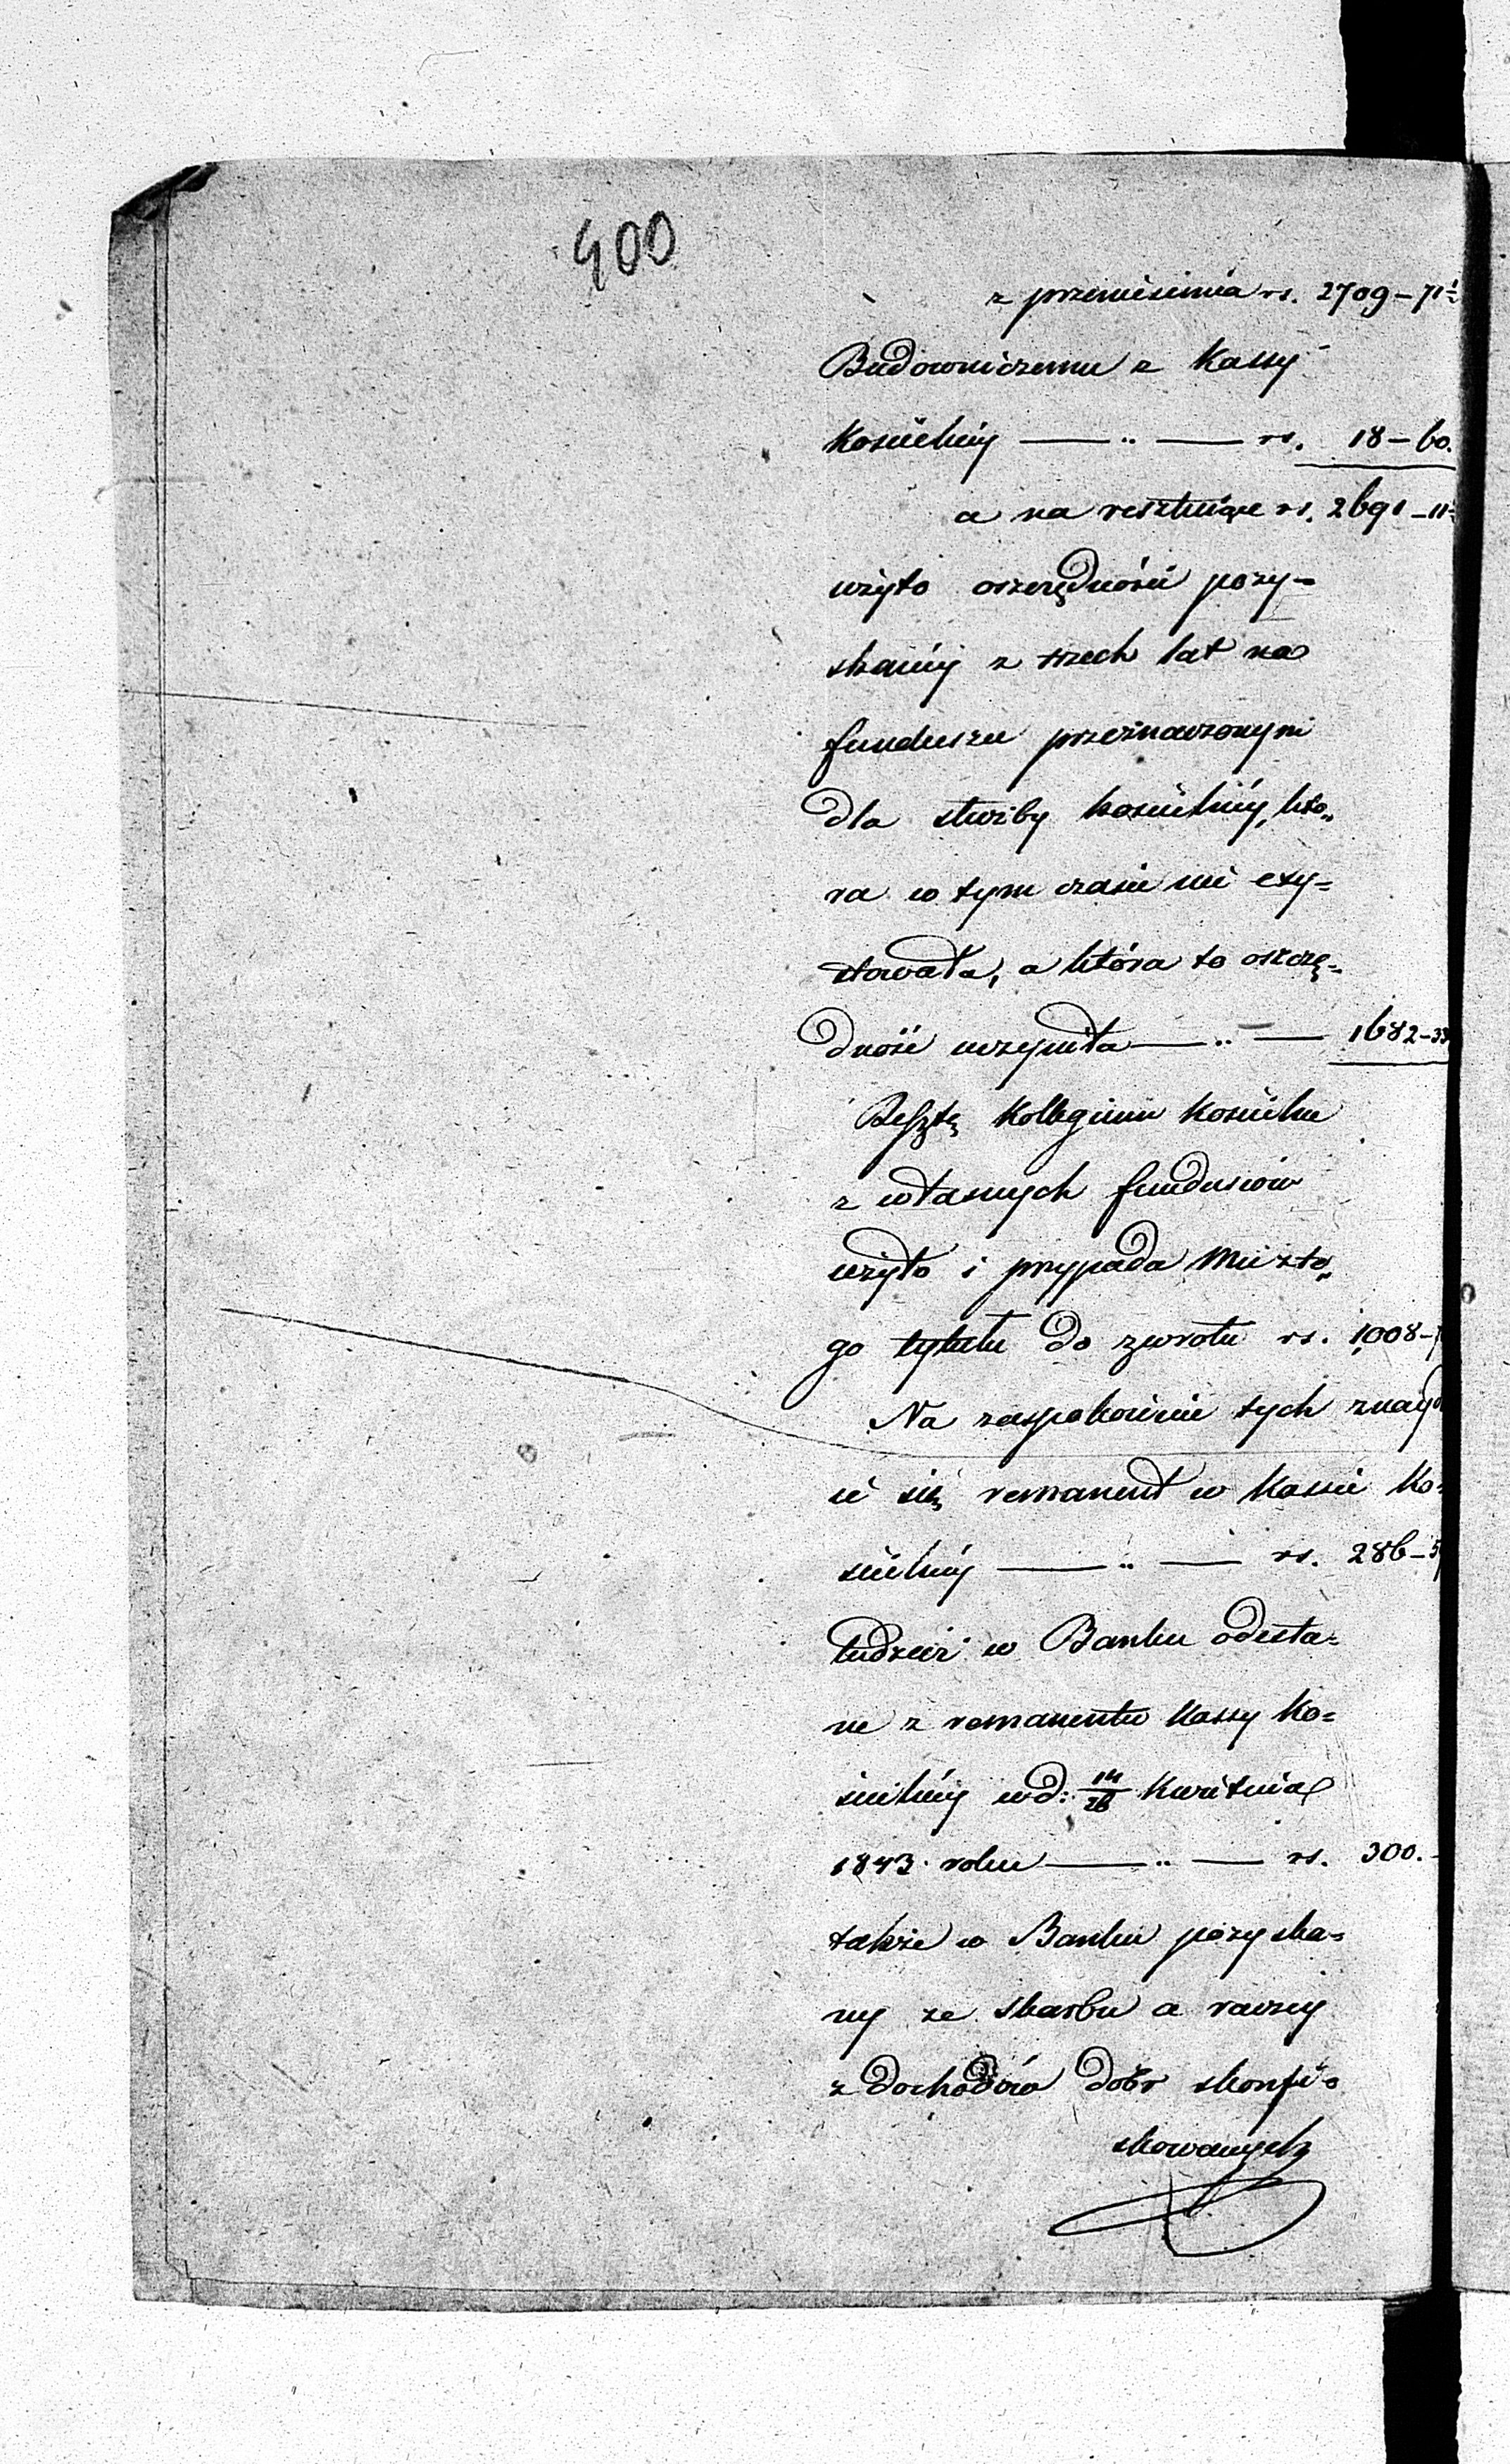 400
z przeniesienia rs. 2709-71½
Budowniczemu z Kassy
Kościelnéy —— „ —— rs. 18-60.
a na resztuiące rs. 2691-11½
użyto oszczędności pozy-
skanéy z trzech lat na
funduszu przeznaczonym
dla służby kościelnéy, któ„
ra w tym czasie nie exy=
stowała, a która to oszczę-
dność uczyniła —— „ —— 1682-33
Resztę Kollegium Kościelne
z własnych funduszów
użyło i przypada Mu z te„
go tytułu do zwrotu rs. 1008-7
Na zaspokoienie tych znayd
ie się remanent w Kassie Ko=
ścielnéy —— „ —— rs. 286-5
tudzież w Banku odesła=
ne z remanentu Kassy Ko=
ścielnéy w d: 14/26 Kwietnia
1843 roku —— „ —— rs. 300.-
także w Banku pozyska=
ny ze skarbu a raczéy
z dochodów dóbr skonfi=
skowanych